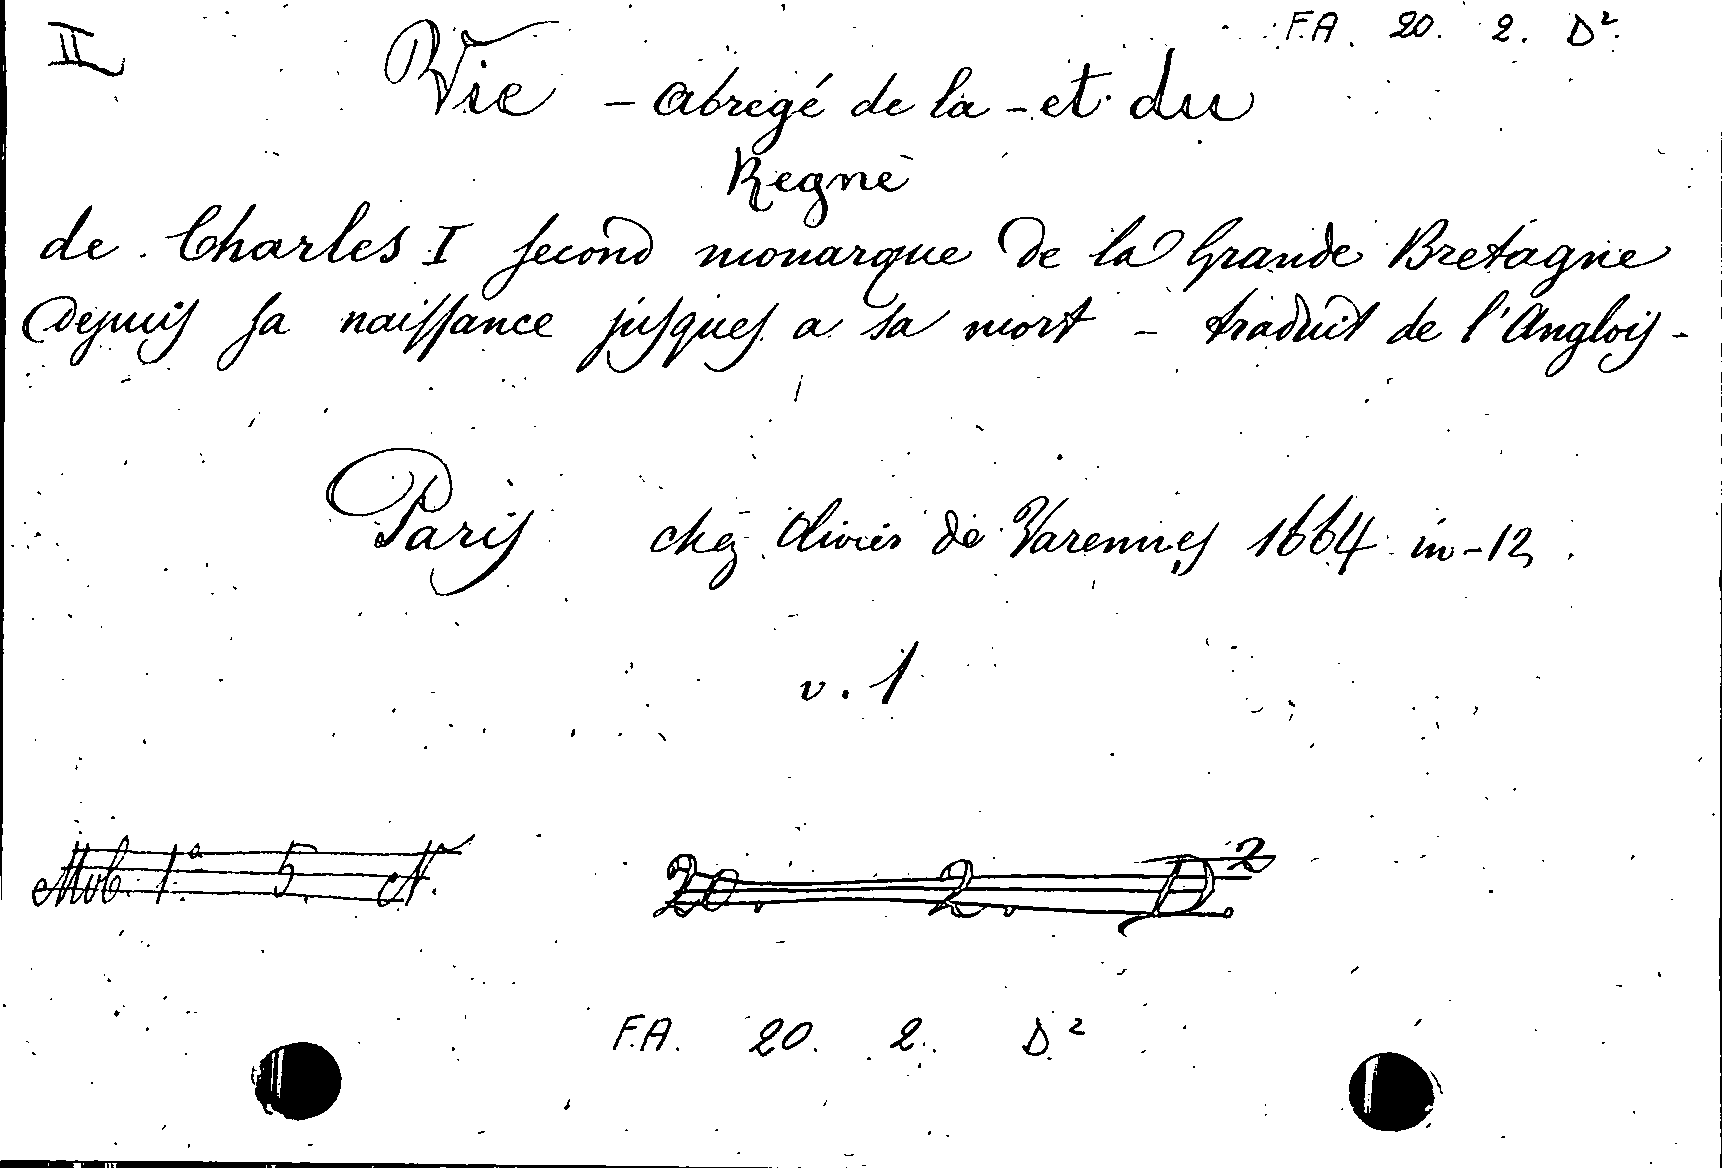 II
F.A. 20. 2. D².
Vie - abregé de la - et du
Regne
de Charles I second monarque de la Grande Bretagne
depuis sa naissance jusques a sa mort - traduit de l'Anglois -
Paris chez Olivier de Varennes 1664 in-12.
v. 1
Mob. 1.ª 5. N. 20. 2. D².
F.A. 20. 2. D²